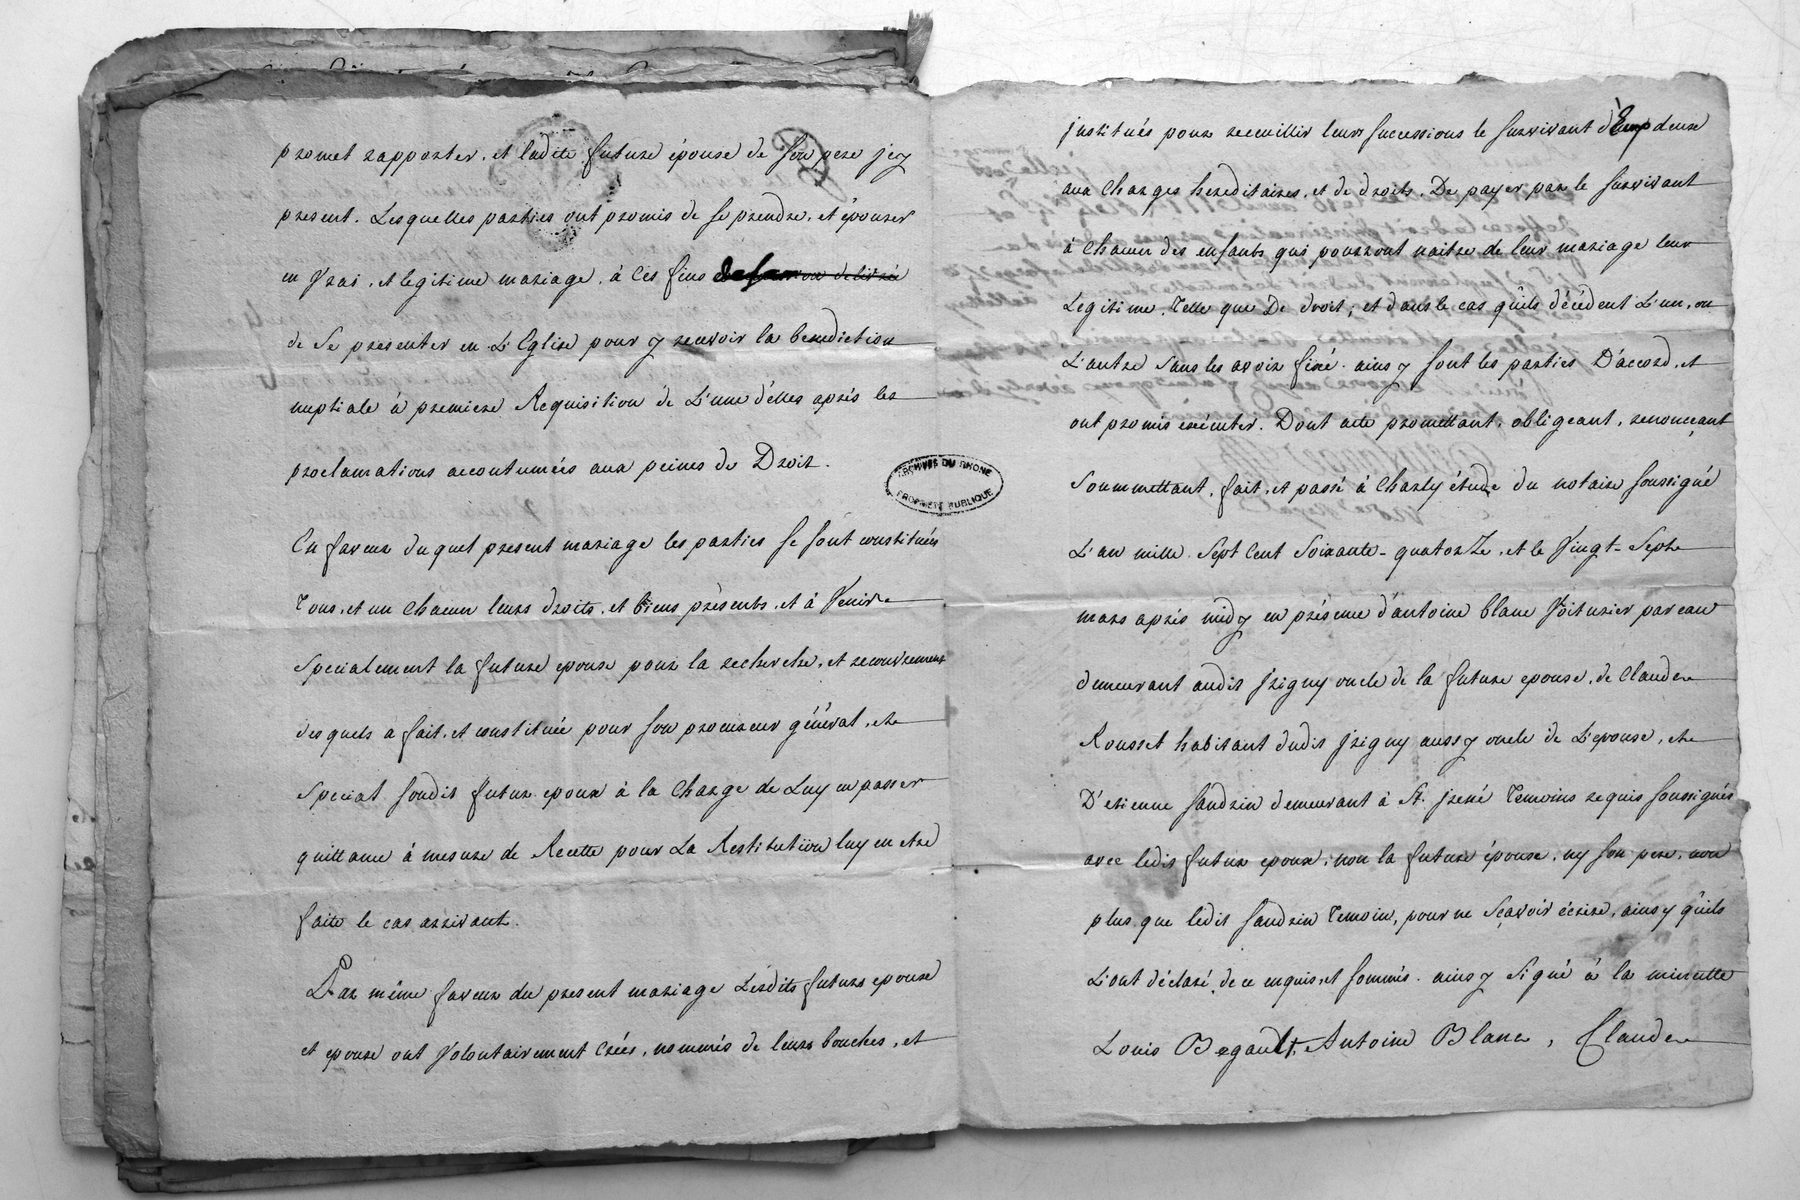 promet rapporter, et ladite future épouse de son pere jcy
present. Lesquelles parties ont promis de se prendre, et épouser
en Vrai, et legitime mariage, à ces fins
de Se presenter en L'Eglise pour y recevoir la benediction
nuptiale à premiere Requisition de L'une d'elles aprés les
proclamations accoutumées aux peines de Droit.
En faveur duquel present mariage les parties se sont constitués
Tous, et un chacun leurs droits, et biens présents, et à Venir
Specialement la future epouse pour la recherche, et recouvrement
desquels a fait, et constitué pour son procureur général, et
Special sondit futur epoux à la charge de Luy en passer
quittance à mesure de Recette pour La Restitution luy en etre
faite le cas arrivant.
Par même faveur du present mariage Lesdits futurs epoux
et epouse ont Volontairement Créés, nommés de leurs bouches, et
ARCHIVES DU RHONE
PROPRIÉTÉ PUBLIQUE
jnstitués pour recueillir leurs successions le survivant d'Eux deux
aux charges hereditaires, et de droits, De payer par le survivant
à chacun des enfants qui pourront naitre de leur mariage leur
Legitime, Telle que De droit, et dans le cas qu'ils décédent L'un, ou
L'autre sans les avoir fixé. ainsy sont les parties D'accord, et
ont promis exécuter. Dont acte promettant, obligeant, renonçant
Soummettant, fait, et passé à Charly étude du notaire soussigné
L'an mille Sept Cent Soixante-quatorze, et le Vingt-Sept
mars aprés midy en présence d'antoine blanc Voiturier par eau
demeurant audit jrigny oncle de la future epouse, de Claude
Rousset habitant dudit jrigny aussy oncle de L'epouse, et
D'etienne sandrin demeurant à St. jrené Temoins requis soussignés
avec ledit futur epoux, non la future épouse, ny son pere, non
plus que ledit sandrin Temoin, pour ne Sçavoir écrire, ainsy qu'ils
L'ont déclaré, de ce enquis, et sommés. ainsy Signé à la minutte
Louis Begault, Antoine Blanc, Claude